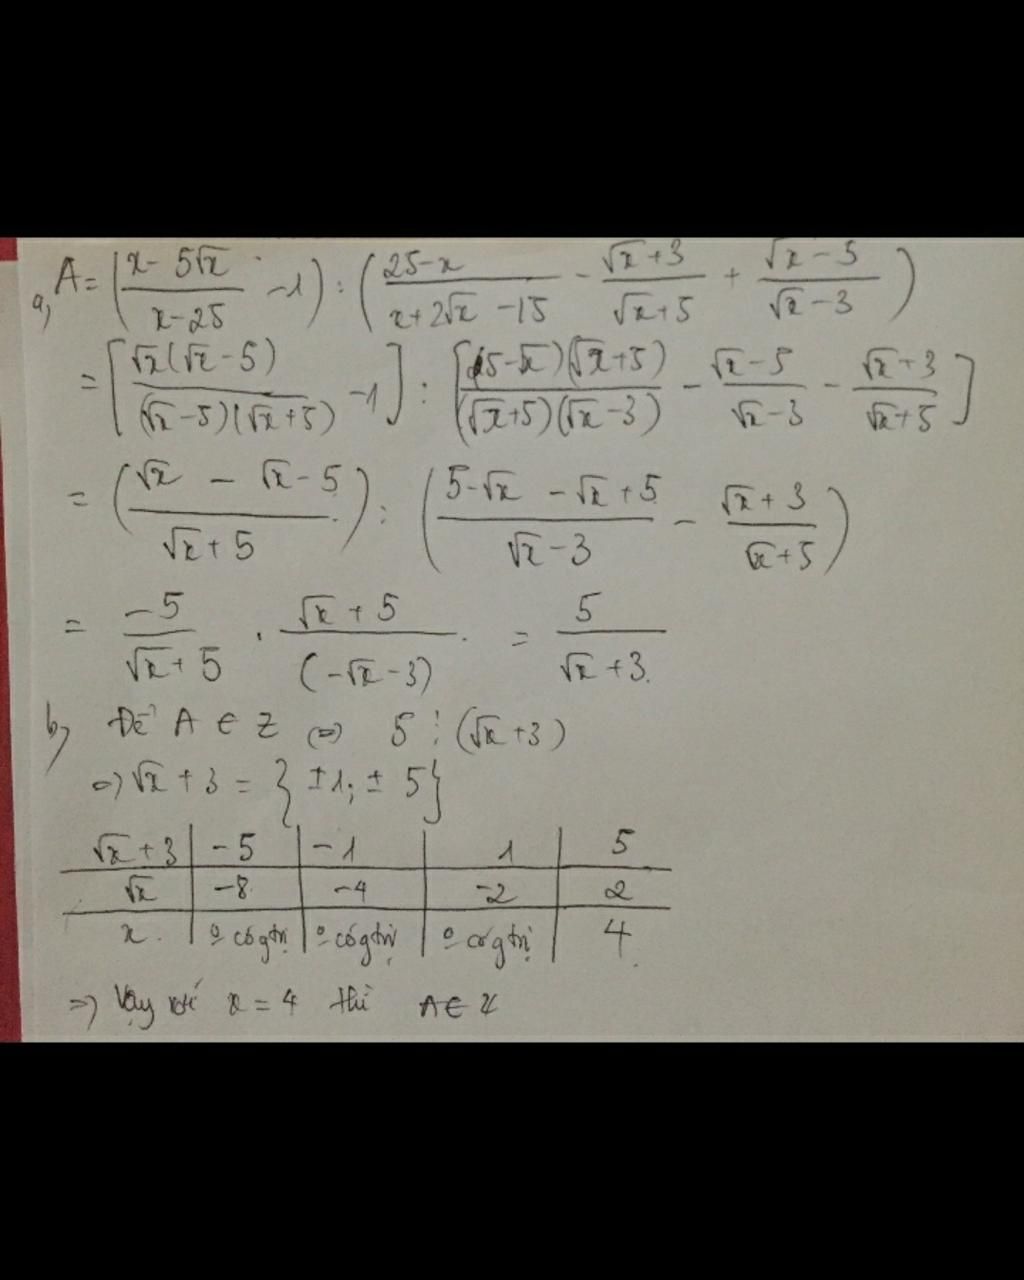 a, A = (x - 5√x / x - 25 - 1) : (25 - x / x + 2√x - 15 - √x + 3 / √x + 5 + √x - 5 / √x - 3)
= [√x(√x - 5) / (√x - 5)(√x + 5) - 1] : [(5 - √x)(√x + 5) / (√x + 5)(√x - 3) - √x - 5 / √x - 3 - √x + 3 / √x + 5]
= (√x - √x - 5 / √x + 5) : (5 - √x - √x + 5 / √x - 3 - √x + 3 / √x + 5)
= -5 / √x + 5 . √x + 5 / (-√x - 3) = 5 / √x + 3.
b, Để A ∈ Z ⇔ 5 ⋮ (√x + 3)
⇒ √x + 3 = { ±1; ± 5}
√x + 3 | -5 | -1 | 1 | 5
√x | -8 | -4 | -2 | 2
x | có gtrị | có gtrị | có gtrị | 4
⇒ Vậy với x = 4 thì A ∈ Z